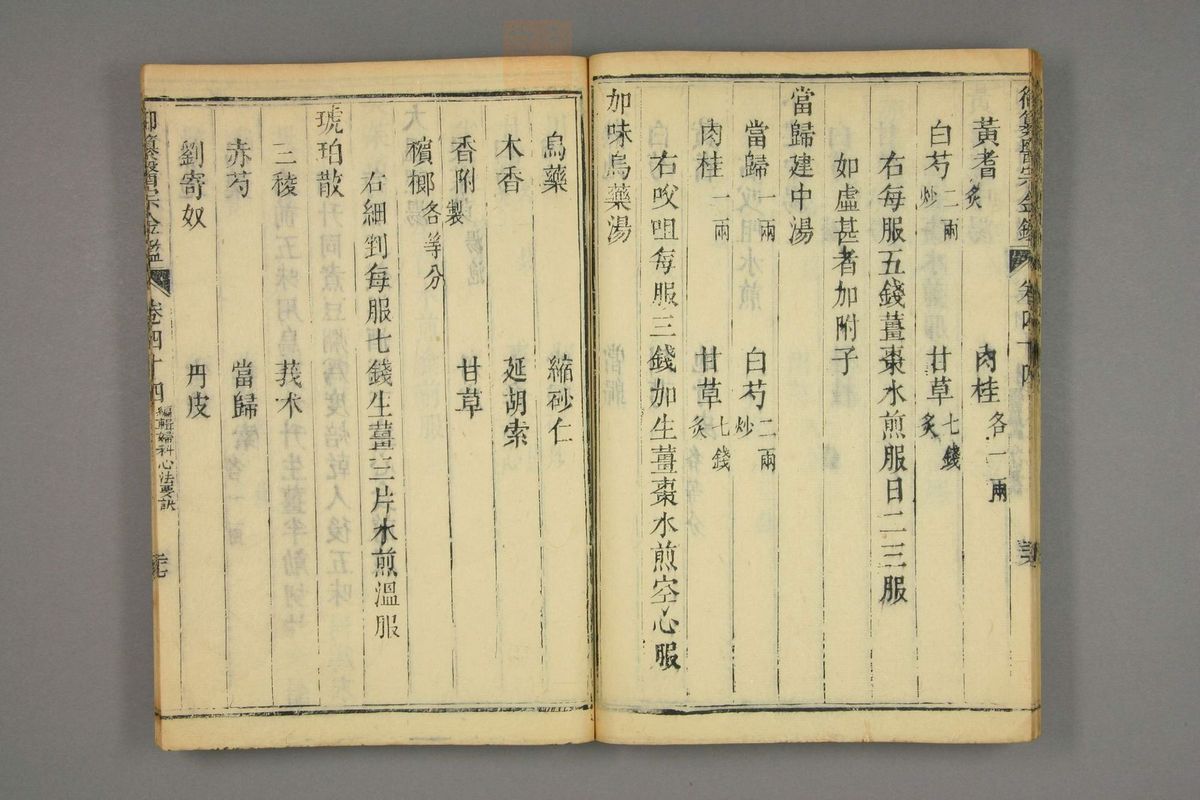 御纂醫宗金鑑 卷四十四
黃耆炙 肉桂各一兩
白芍炒二兩 甘草炙七錢
右每服五錢薑棗水煎服日二三服
如虛甚者加附子
當歸建中湯
當歸一兩 白芍炒二兩
肉桂一兩 甘草炙七錢
右㕮咀每服三錢加生薑棗水煎空心服
加味烏藥湯
烏藥 縮砂仁
木香 延胡索
香附製 甘草
檳榔各等分
右細剉每服七錢生薑三片水煎溫服
琥珀散
三稜 莪朮
赤芍 當歸
劉寄奴 丹皮
御纂醫宗金鑑 卷四十四 編輯婦科心法要訣 三七